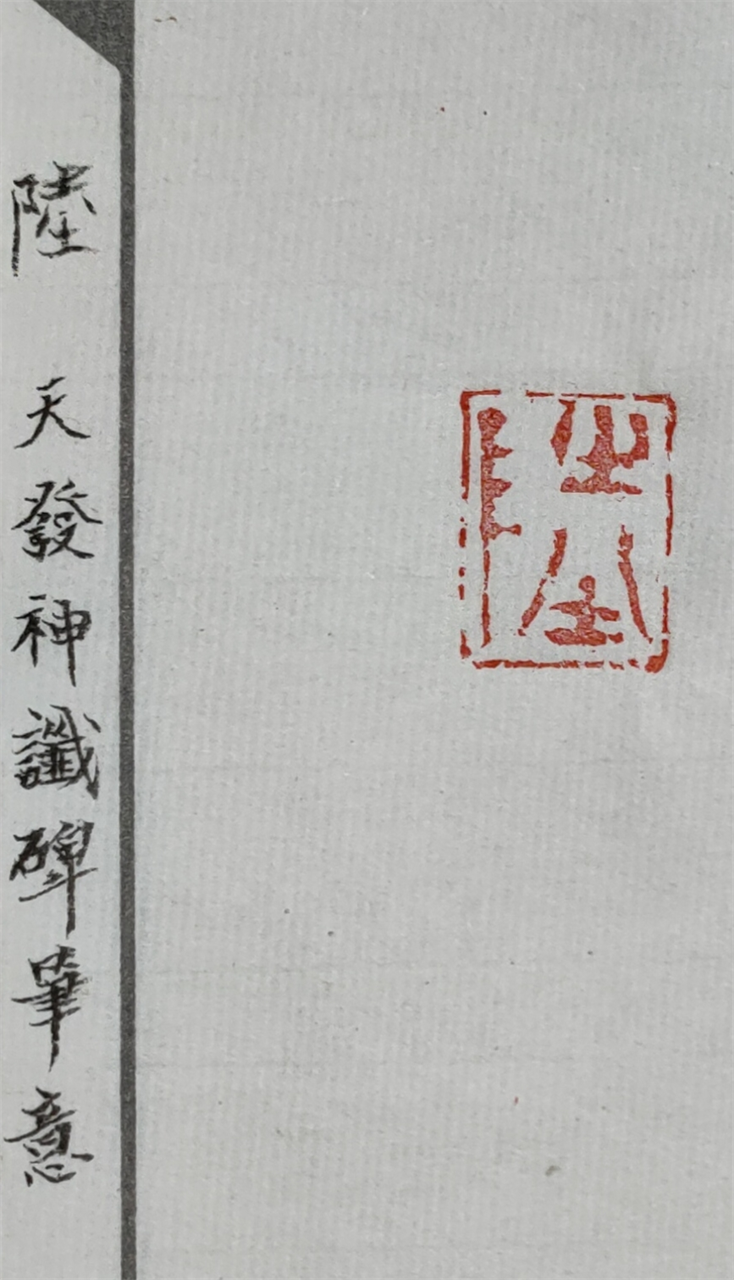 陸
陸 天發神讖碑筆意